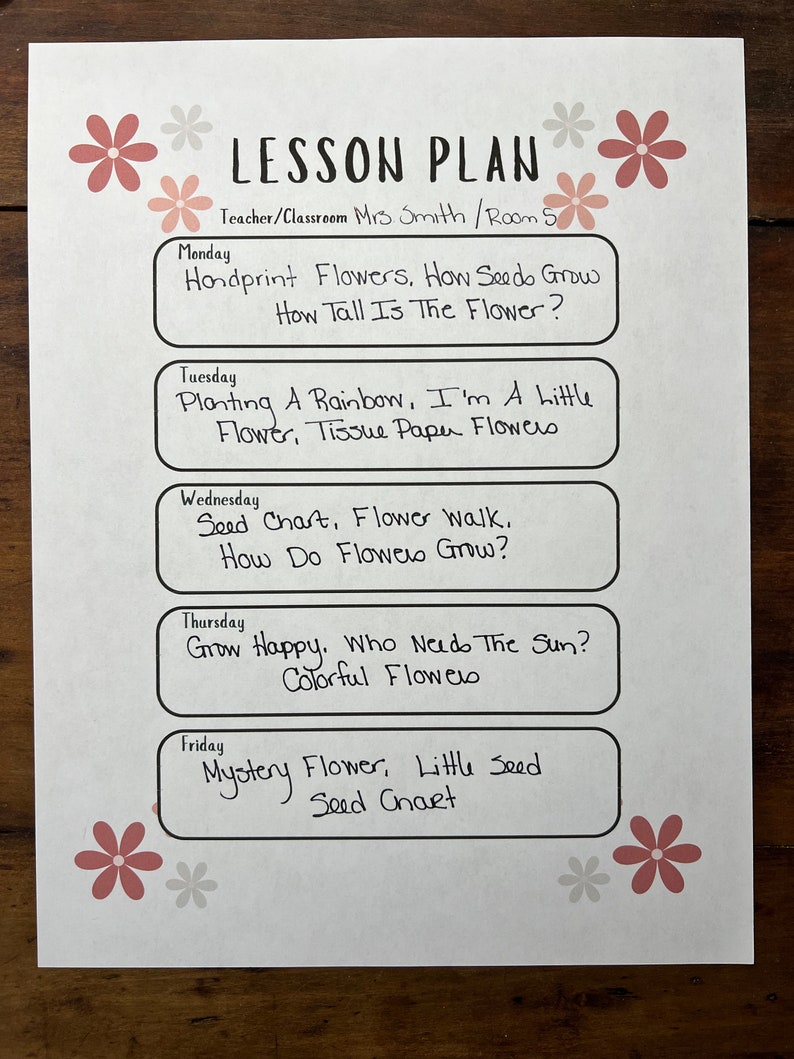 LESSON PLAN
Teacher/Classroom Mrs Smith / Room 5
Monday
Handprint Flowers, How Seeds Grow
How Tall Is The Flower?
Tuesday
Planting A Rainbow, I'm A Little
Flower, Tissue Paper Flowers
Wednesday
Seed Chart, Flower Walk,
How Do Flowers Grow?
Thursday
Grow Happy, Who Needs The Sun?
Colorful Flowers
Friday
Mystery Flower, Little Seed
Seed Chart